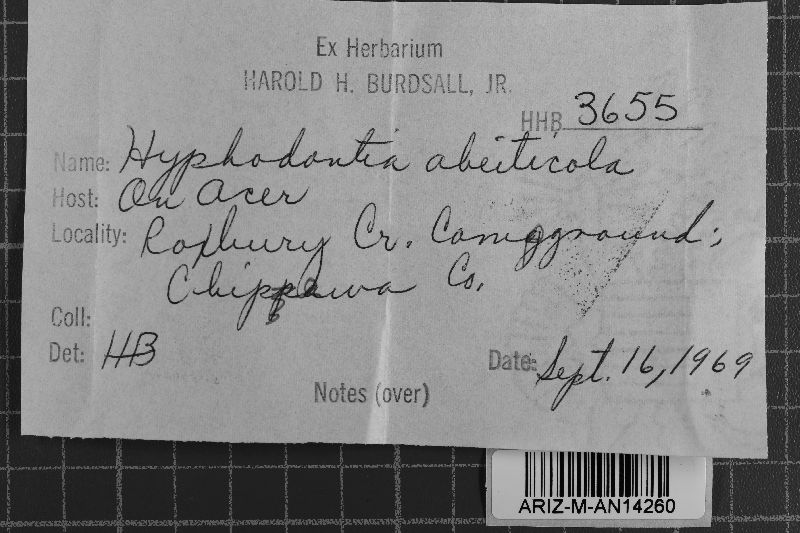 Ex Herbarium
HAROLD H. BURDSALL, JR.
HHB 3655
Name: Hyphodontia abieticola
Host: On Acer
Locality: Roxbury Cr. Campground;
Chippewa Co.
Coll:
Det: HB
Date: Sept. 16, 1969
Notes (over)
ARIZ-M-AN14260